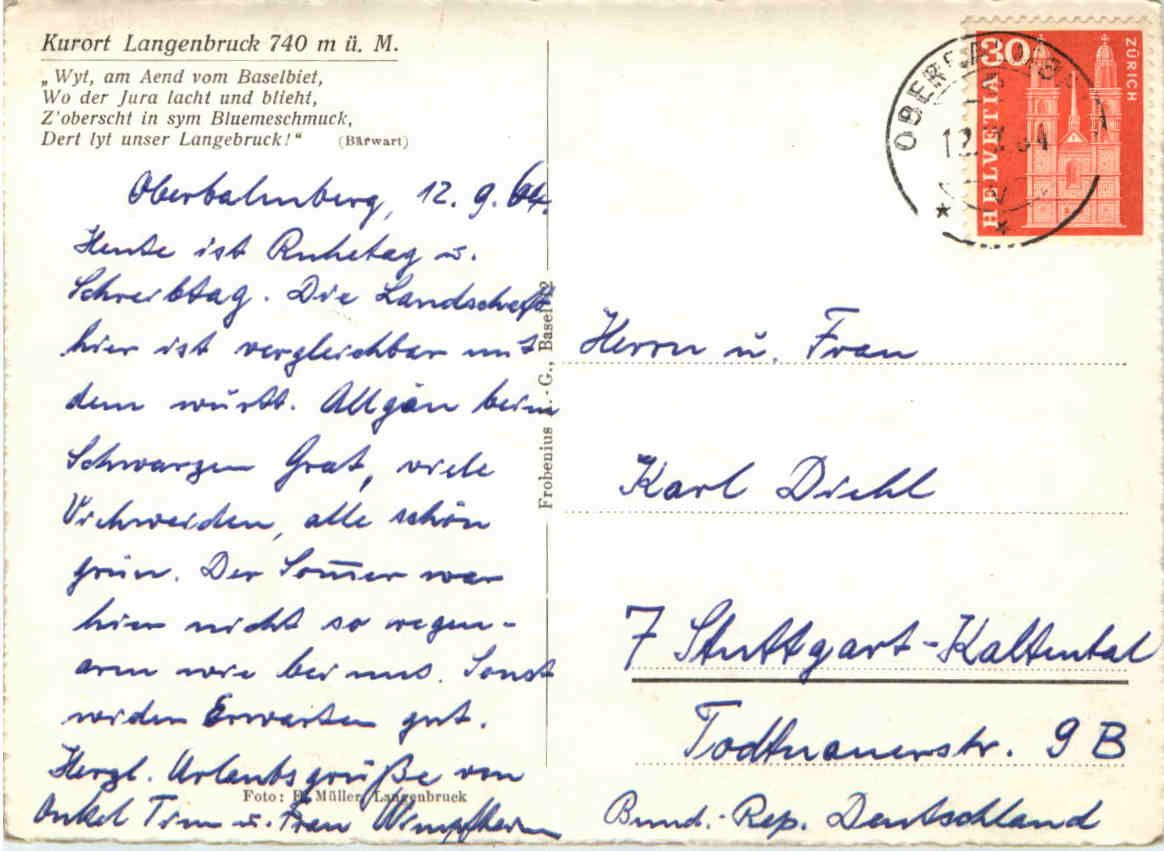 Kurort Langenbruck 740 m ü. M.
„Wyt, am Aend vom Baselbiet,
Wo der Jura lacht und blieht,
Z'oberscht in sym Bluemeschmuck,
Dert lyt unser Langebruck!“ (Bärwart)
Oberbalmberg, 12. 9. 64.
Heute ist Ruhetag u.
Schreibtag. Die Landschaft
hier ist vergleichbar mit
dem württ. Allgäu beim
Schwarzen Grat, viele
Viehweiden, alle schön
grün. Der Som̅er war
hier nicht so regen-
arm wie bei uns. Sonst
wider Erwarten gut.
Herzl. Urlaubsgrüße von
Onkel Timm u. Frau
Foto: Müller, Langenbruck
Frobenius A.-G., Basel 12
HELVETIA
30
ZÜRICH
12. 64
Herrn u. Frau
Karl Diehl
7 Stuttgart-Kaltental
Todtnauerstr. 9 B
Bund.-Rep. Deutschland